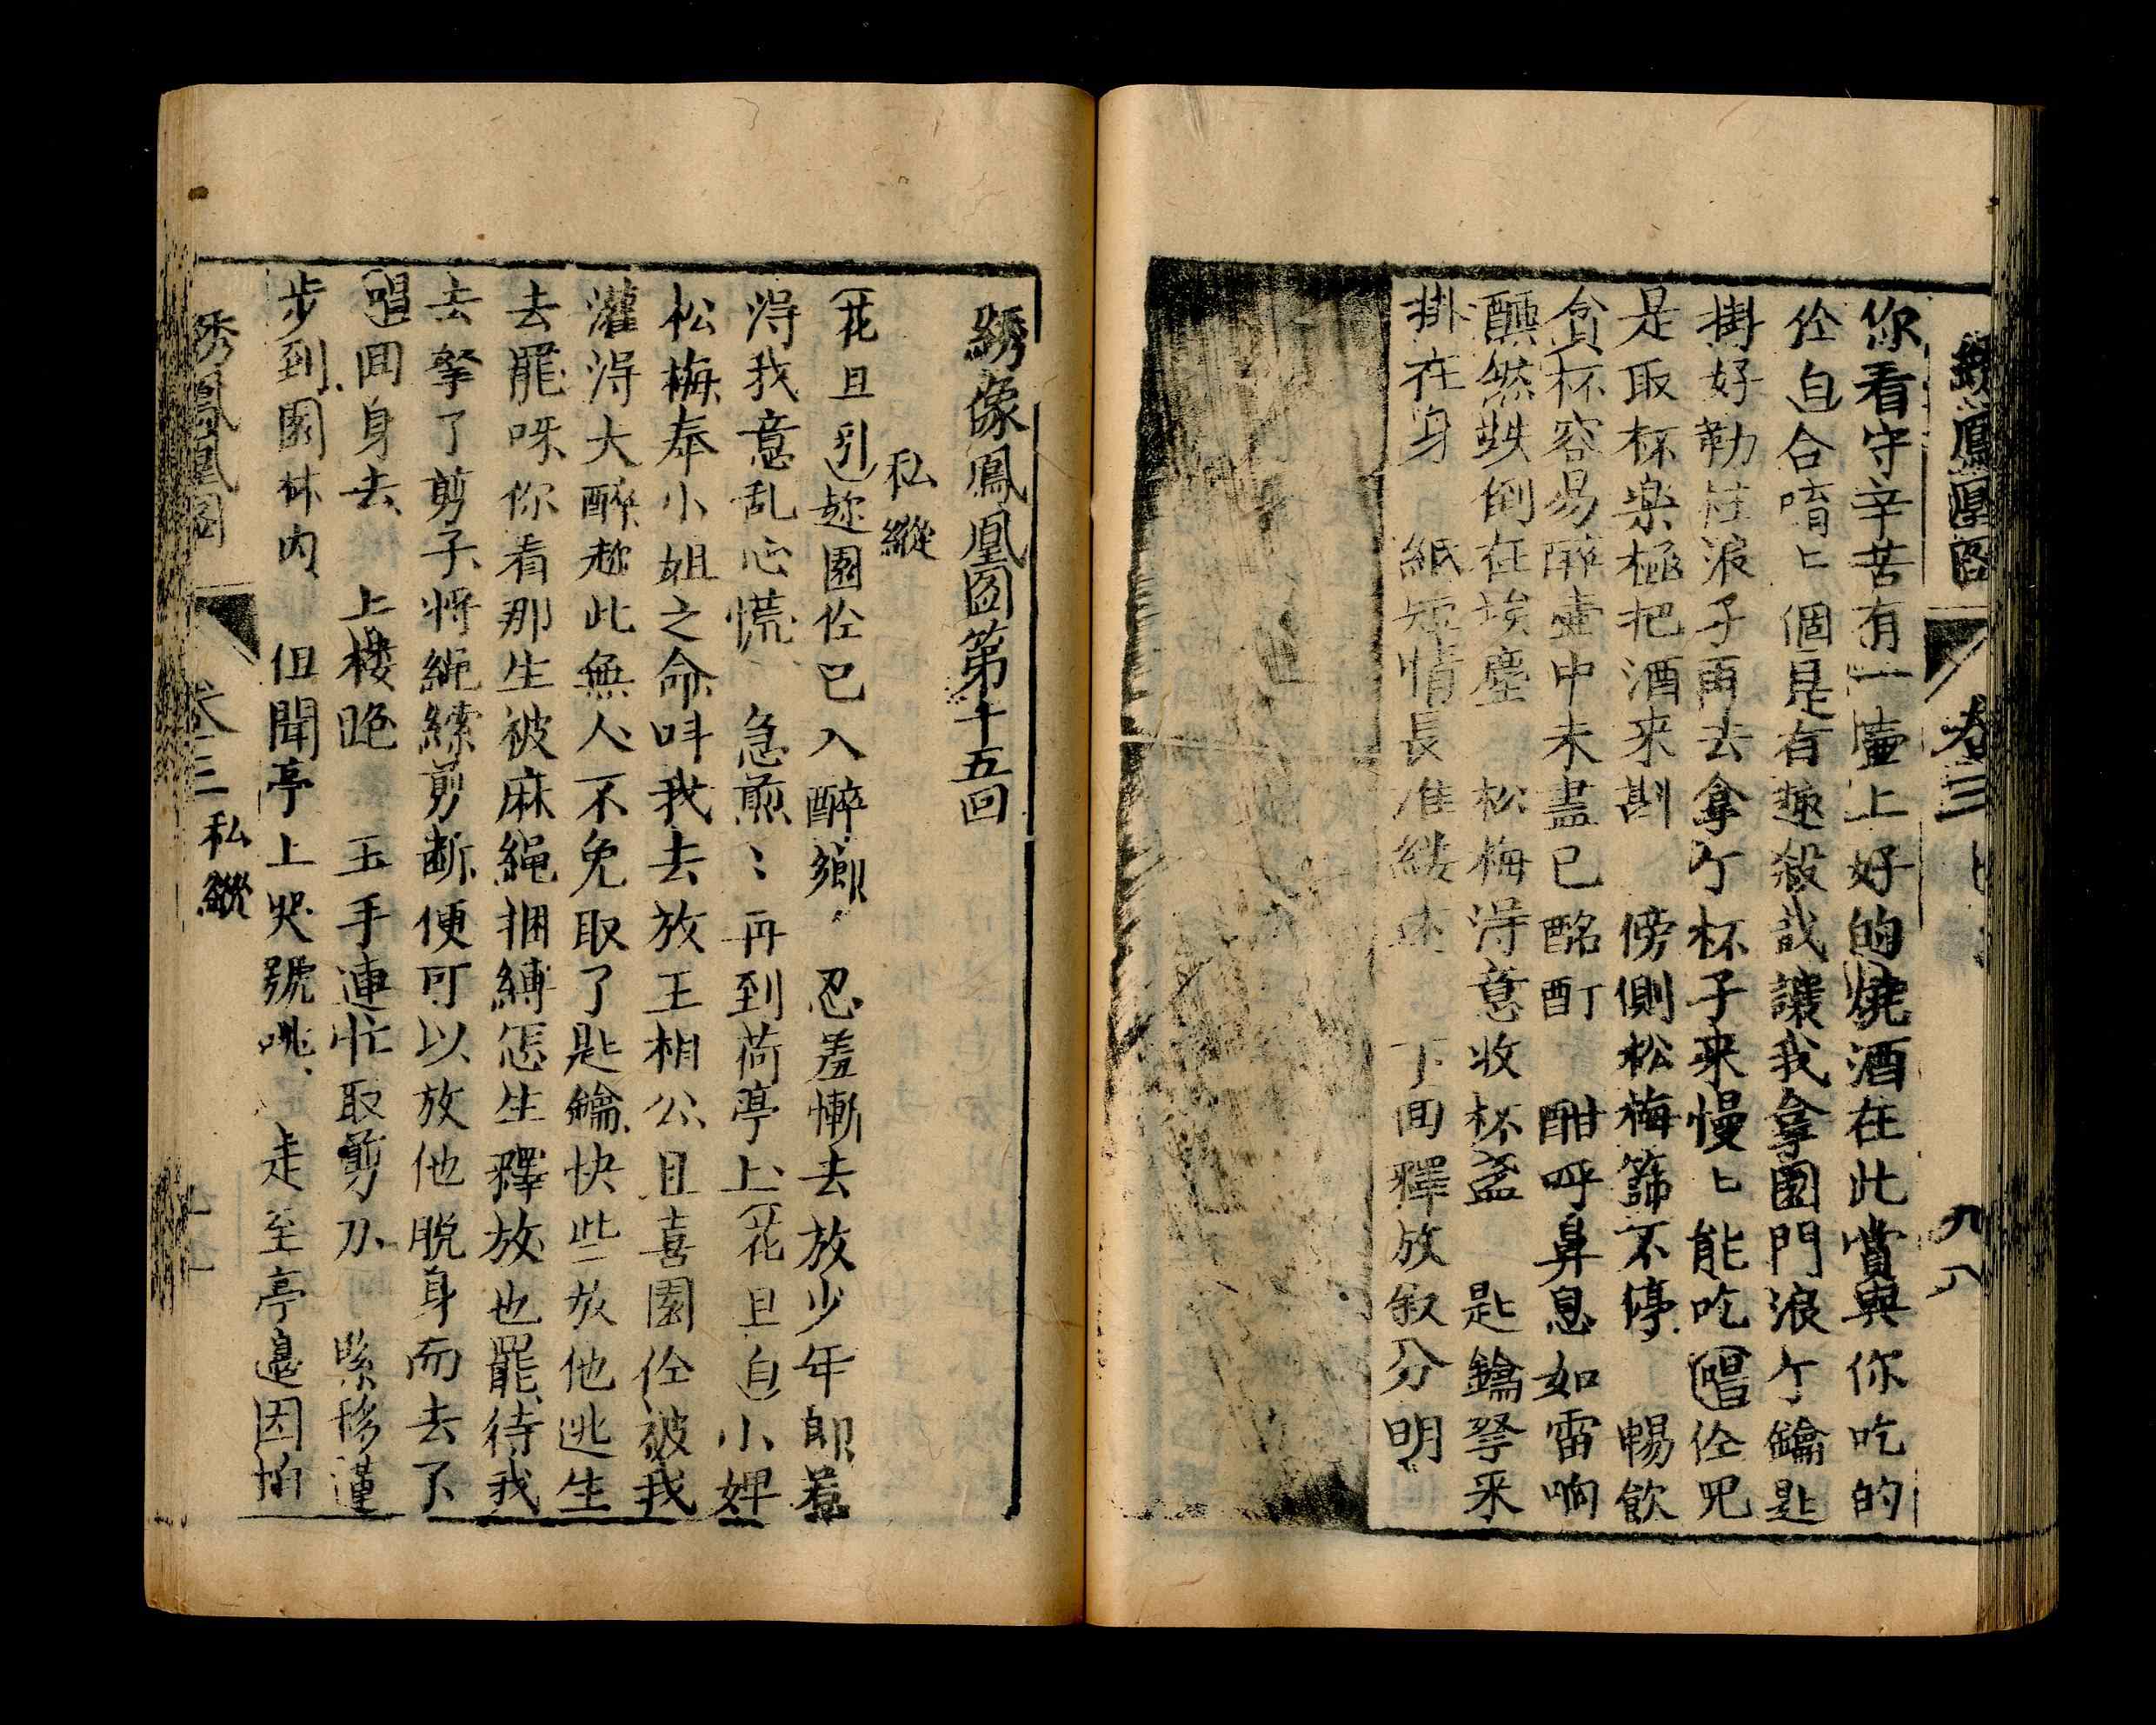 綉鳳凰图 卷三 九八
你看守辛苦有一壶上好的燒酒在此賞與你吃的
伫白合唷匕個是有趣殺哉讓我拿园門浪ケ鑰匙
掛好勒柱浪子再去拿ケ杯子来慢匕能吃唱伫児
是取杯楽極把酒来斟 傍側松梅篩不停 暢飲
貪杯容易醉壶中未盡已酩酊 酣呼鼻息如雷响
醺然跌倒在埃塵 松梅淂意收杯盞 匙鑰拏来
掛在身 紙短情長准綫 下囬釋放叙分明
綉像鳳凰图第十五回
私縱
花旦引趂園伫已入醉鄉 忍羞慚去放少年郎惹
淂我意乱心慌 急煎〻再到荷亭上花旦白小婢
松梅奉小姐之命呌我去放王相公且喜園伫被我
灌淂大醉趂此無人不免取了匙鑰快些放他逃生
去罷呀你看那生被麻繩捆縛怎生釋放也罷待我
去拏了剪子将繩縤剪断便可以放他脫身而去了
唱囬身去 上楼跑 玉手連忙取剪刀 緊移蓮
步到園林内 但聞亭上哭號咷 走至亭邉因怕
秀鳳凰图 卷三 私縱